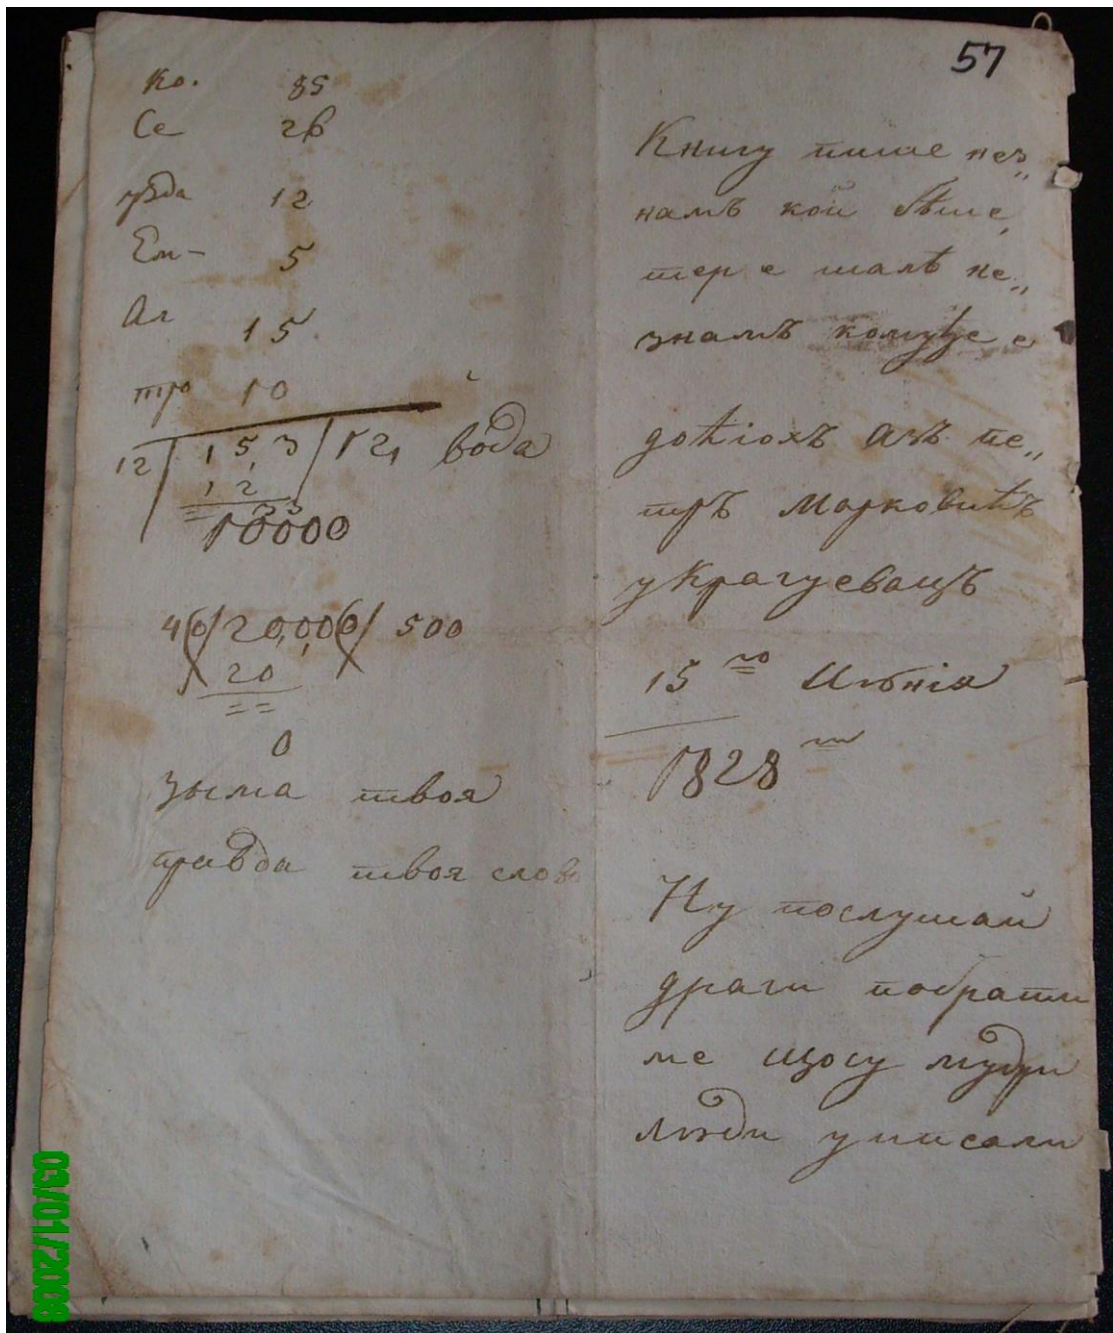 57
Ко. 85
Се 26
12
Ем- 5
Ал
15
тро 10
12 153 12, вода
12
10000
40/20,000/ 500
20
0
зыма твоя
правда твоя слов
Книгу пише нез„
намъ кои бѣше,
тер е шалѣ не„
знамъ е
доѣіохъ Азъ пе„
тръ Марковићъ
у Крагуевацъ
15 го Июнія
1828
Ну послушай
драги побрати
ме щосу мудри
люди уписали
03/01/2008